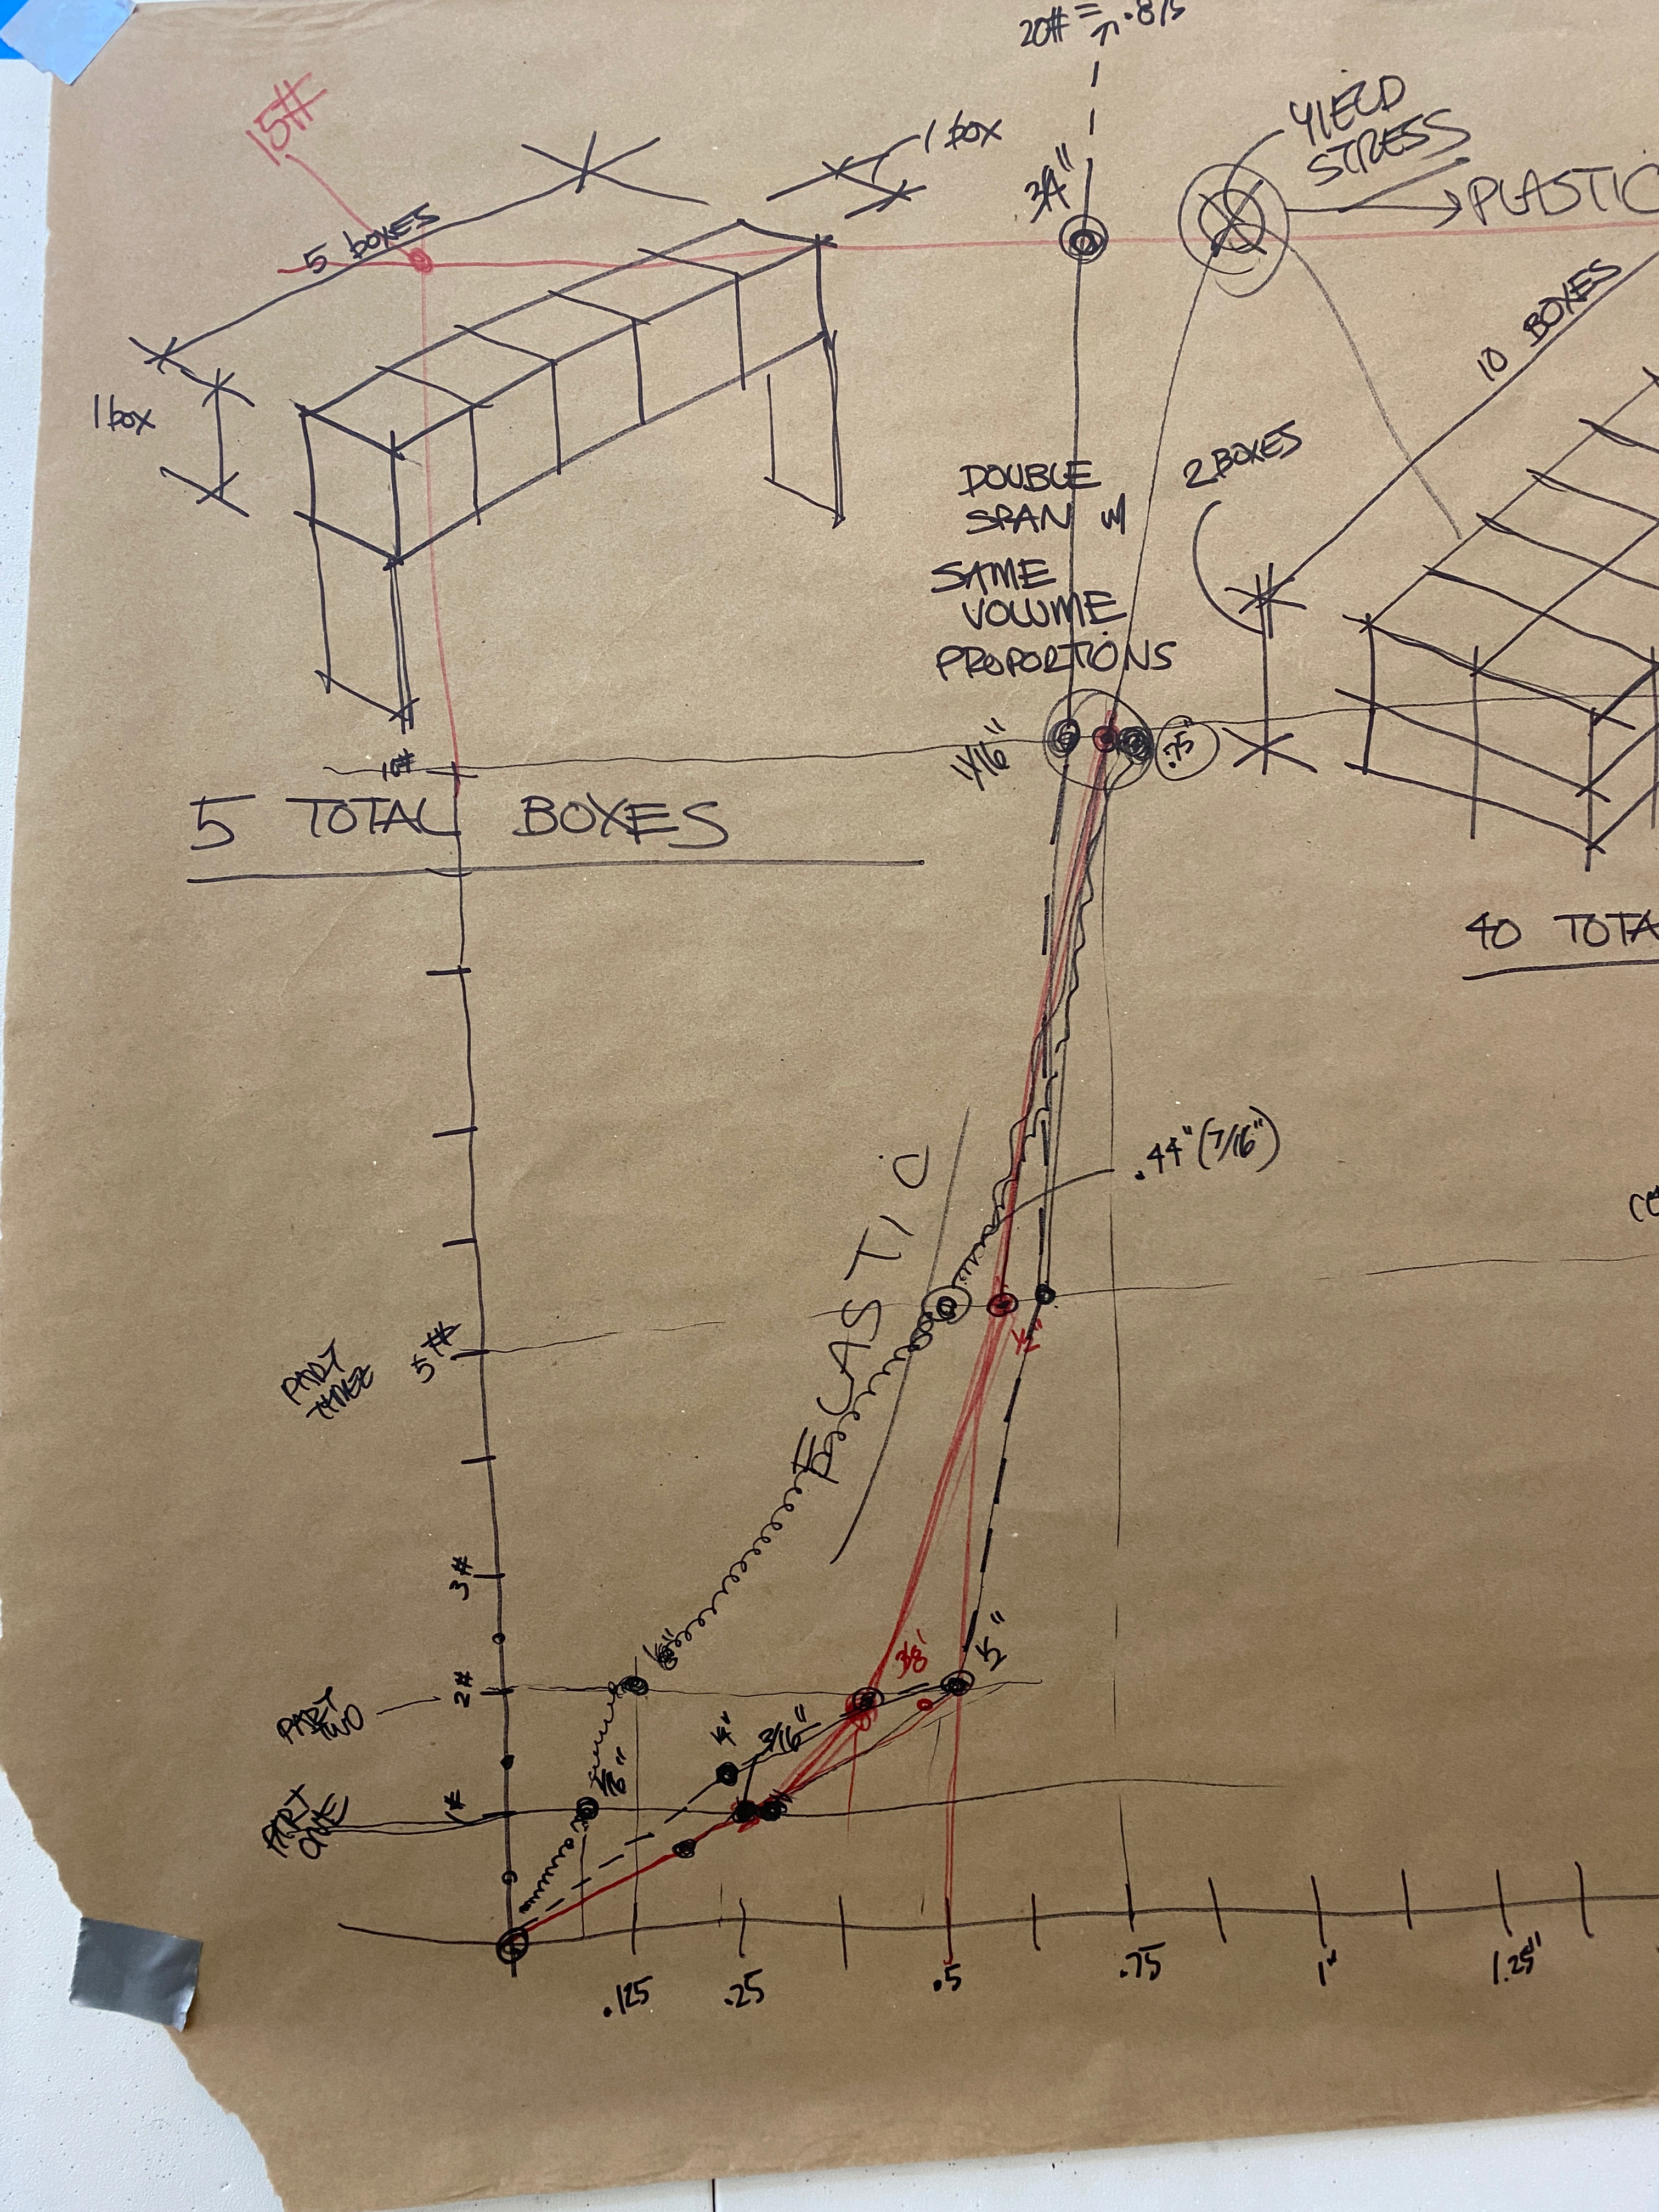 20# = .815
15#
1 box
YIELD
STRESS
3/4"
PLASTIC
5 BOXES
10 BOXES
1 box
2 BOXES
DOUBLE
SPAN w/
SAME
VOLUME
PROPORTIONS
11/16"
.75"
10#
5 TOTAL BOXES
40 TOTA
.44" (7/16")
ELASTIC
1/2"
5#
PART
THREE
3#
3/8"
1/2"
1/8"
2#
PART
TWO
1/4"
3/16"
1/16"
1#
PART
ONE
.125
.25
.5
.75
1"
1.25"